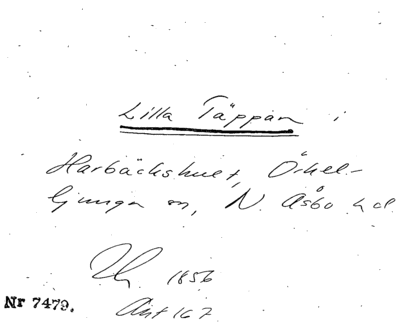 Lilla Täppan i
Harbäckshult, Örkel-
ljunga sn, N. Åsbo hd
1856
Nr 7479.
Akt 167